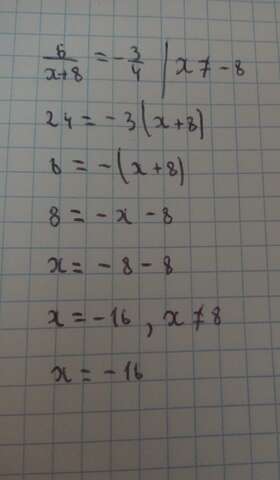 6/(x+8) = -3/4 | x ≠ -8
24 = -3(x+8)
8 = -(x+8)
8 = -x - 8
x = -8 - 8
x = -16, x ≠ 8
x = -16